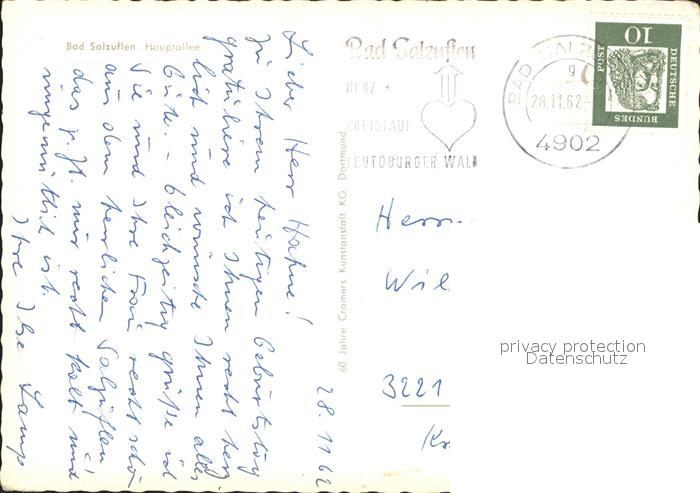 Bad Salzuflen, Hauptallee
28.11.62
Lieber Herr Hahne!
Zu Ihrem heutigen Geburtstag
gratuliere ich Ihnen recht herz-
lich und wünsche Ihnen alles
Gute. – Gleichzeitig grüße ich
Sie und Ihre Frau recht schön
aus dem herrlichen Salzuflen,
das z. Zt. mir recht kalt und
ungemütlich ist.
Ihre Ilse
60 Jahre Cramers Kunstanstalt KG, Dortmund
Bad Salzuflen
HERZ +
KREISLAUF
TEUTOBURGER WALD
BAD
28.11.62
4902
DEUTSCHE
BUNDES
POST
10
Herrn
Wil
3221
(Kr.
privacy protection
Datenschutz